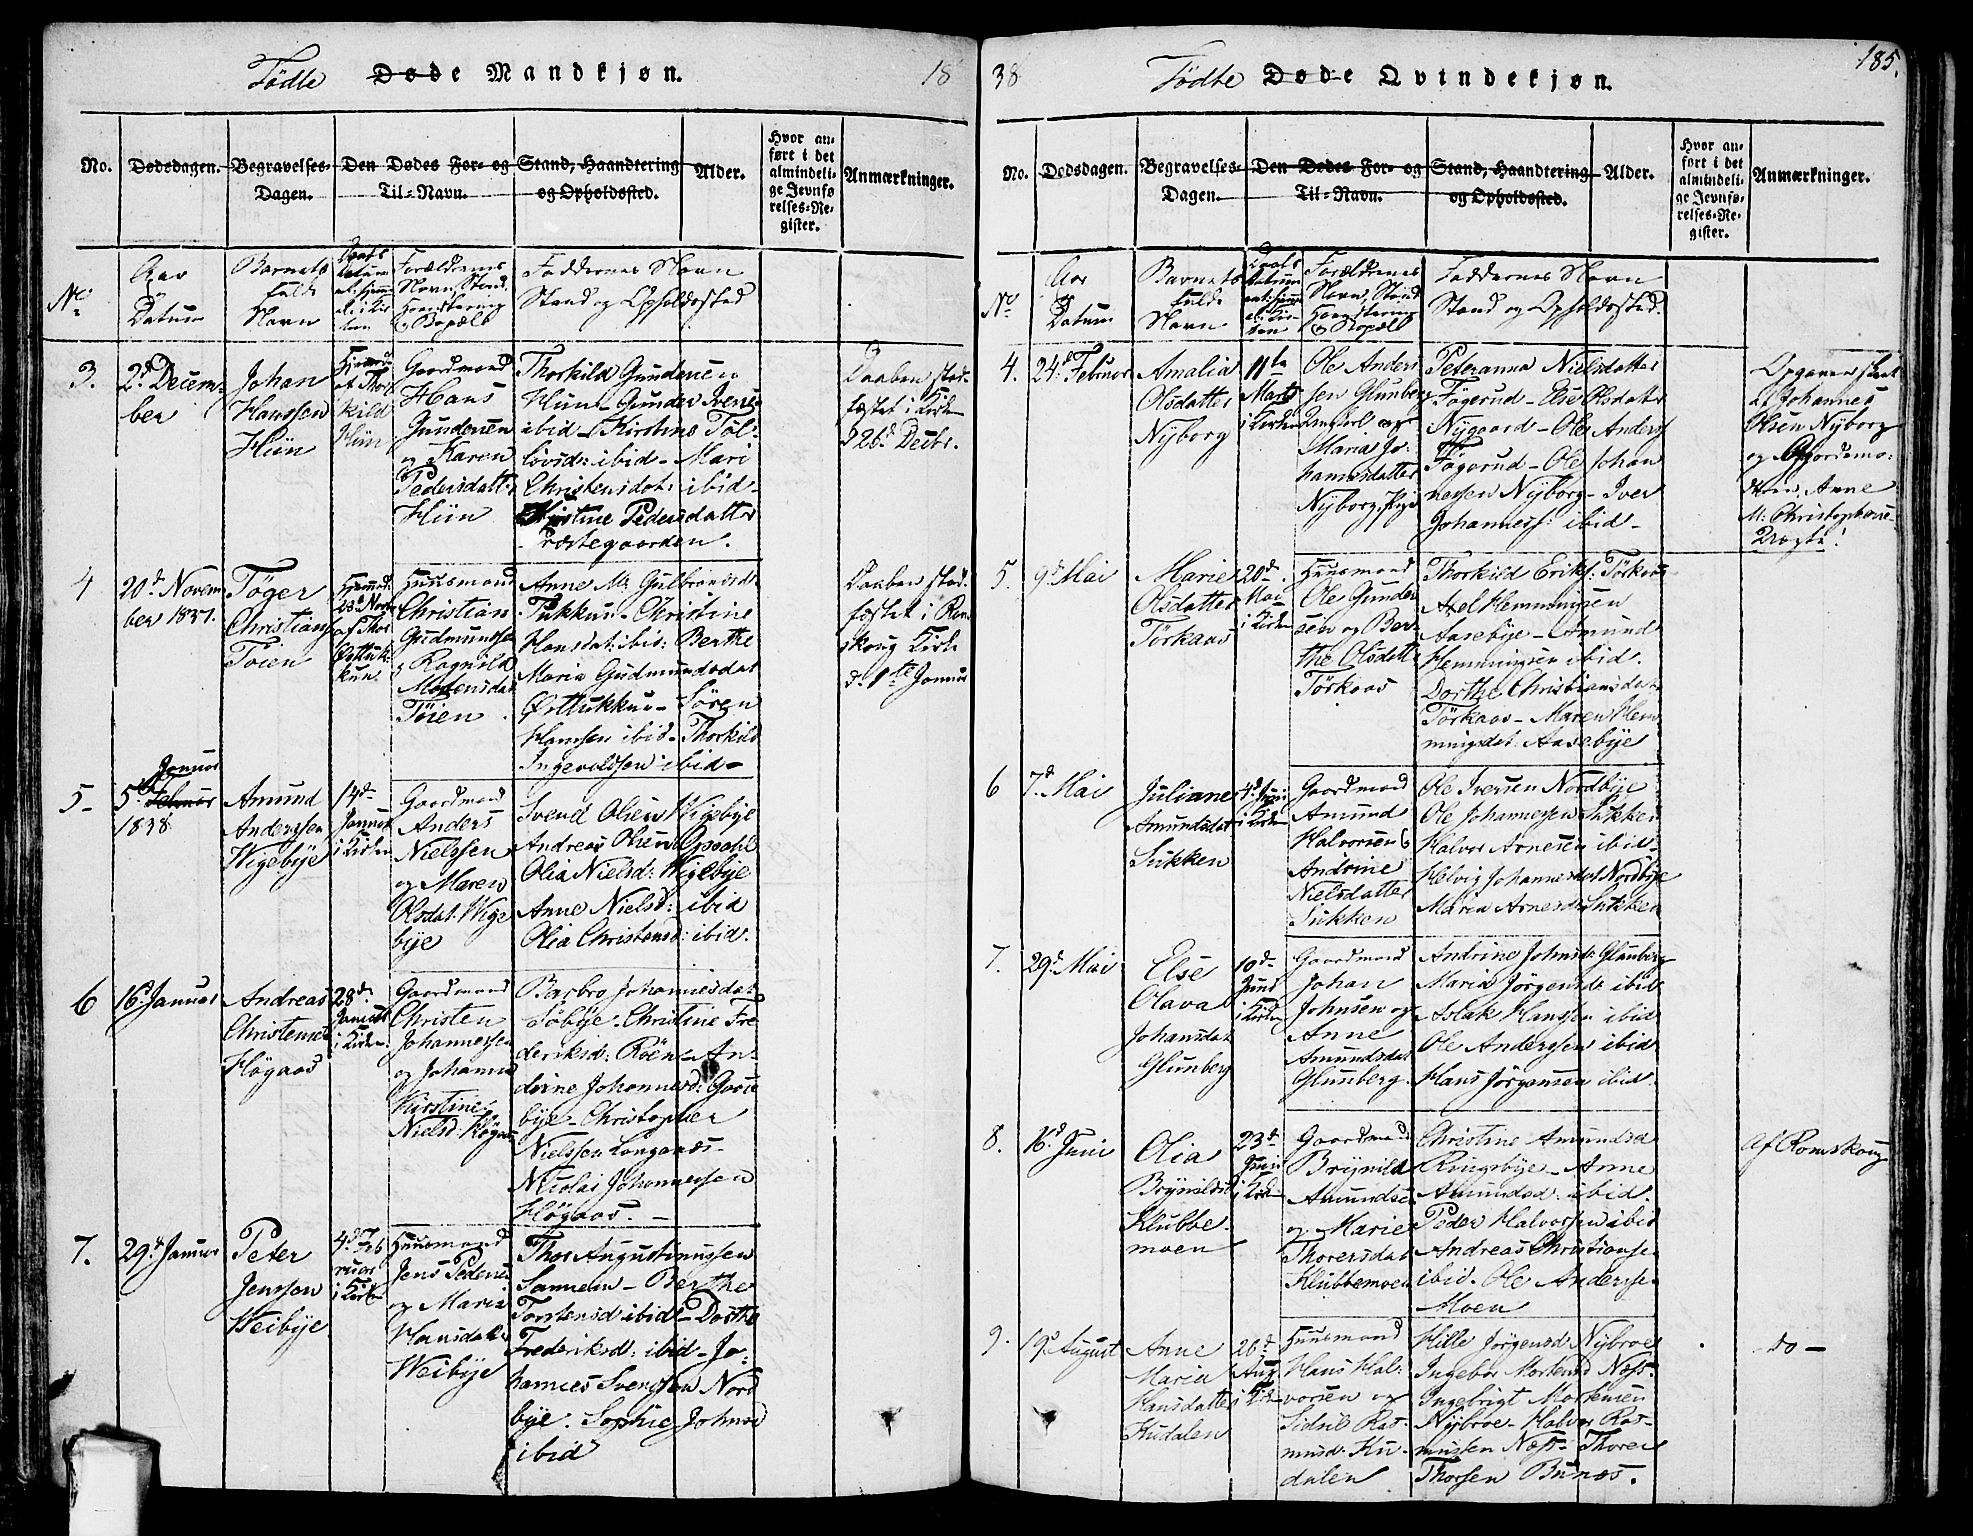 Fødte Døde Mandkjøn. 18
No.
Dødedagen.
Begravelses-
Dagen.
Den Dødes For- og
Til-Navn.
Stand, Haandtering
og Opholdssted.
Alder.
Hvor an-
ført i det
almindeli-
ge Jevnfø
relses-Re-
gister.
Anmærkninger.
No.
Aar
og
Datum
Barnets
fulde
Navn
Daabs
datum
Forældrenes
Navn, Stand,
Haandtering
og Bopæl
Faddernes Navn
Stand og Opholdssted
3.
2d Decem-
ber
Johan
Hanssen
Hün
Hjemmed.
af Thor
kild
Hün
Gaardmand
Hans
Gundersen
og Karen
Pedersdatter
Hün
Thorkild Gundersen
Hün - Gunder Ivers.
ibid - Kirstine Tol-
løvsd: ibid - Mari
Christensdat: ibid -
Kirstine Pedersdatter
Præstegaarden.
Daaben stad-
fæstet i Kirken
d 26d Decbr.
4
20d Novem
ber 1837.
Töger
Christians
Töien
Hjemmed.
23d Novbr
af Thor
Huusmand
Christian
Gudmundsen
og Ragnild
Mogensdat
Töien.
Anne M: Gulbrandsdr
Tukkun - Christine
Hansdat: ibid: Berthe
Maria Gudmundsdat
Ørtukkun - Sören
Hanssen ibid - Thorkild
Ingevoldsen ibid -
Daaben stad-
fæstet i Rom
skoug Kirke
d. 1te Januar
5-
Januar
5te Februar
1838
Amund
Anderssen
Wigebye
14d
Januar
i Kirken
Gaardmand
Anders
Nielssen
og Maren
Olsdat: Wige
bye
Svend Olsen Wigebye
Andreas Olsen Opsahl
Olia Nielsd: Wigebye
Anne Nielsd: ibid
Olia Christensd: ibid.
6
16d Januar
Andreas
Christensen
Högaas
28d
Januar
i Kirken.
Gaardmand
Christen
Johannessen
og Johanne
Kirstine
Nielsd: Högaas
Barbro Johannesdat
Söbye - Christine Fre
deriksd: Röen - An-
drine Johannesd:
bye - Christopher
Nielssen Langenæs -
Nicolai Johannessen
Högaas. -
7.
29d Januar
Peter
Jenssen
Weibye
4d Feb
ruar
i Kirken
Huusmand
Jens Pedersen
og Maria
Hansdatter
Weibye
Thor Augustinussen
Sanneren - Berthe
Torstensd ibid - Dorthe
Frederiksd: ibid - Jo-
hannes Svenssen Nord
bye. Sophie Johnsd
ibid
38 Fødte Døde Qvindekjøn. 185.
No.
Dødsdagen.
Begravelses-
Dagen.
Den Dødes For- og
Til-Navn.
Stand, Haandtering
og Opholdssted.
Alder.
Hvor an-
ført i det
almindeli-
ge Jevnfø-
relses-Re-
gister.
Anmærkninger.
No
Aar
og
Datum
Barnets
fulde
Navn
Daabs
datum
Forældrenes
Navn, Stand
Haandtering
og Bopæl
Faddernes Navn
Stand og Opholdssted.
4.
24d Februar
Amalia
Olsdatter
Nyborg
11te
Marts
i Kirken
Ole Anders
sen Glunberg
Ungkarl og
Maria Jo-
hannesdatter
Nyborg, Pige
Peteranna Nielsdatter
Tögerud - Else Olsdatter
Nygaard - Ole Anders
Tögerud - Ole Johan
nessen Nyborg - Iver
Johanness: ibid -
Opgaven skeet
af Johannes
Olsen Nyborg
og Gjordemo-
deren, Anne
M: Christophersd
5.
9d Mai
Marie
Olsdatter
Törkaas
20d
Mai
i Kirken
Huusmand
Ole Gunder
sen og Ber-
the Olsdatt:
Törkaas
Thorkild Eriks: Törkaas
Axel Hemmingsen
Aasebye - Amund
Hemmingsen ibid.
Dorthe Christiansdat
Törkaas - Maren Hem
mingsdat: Aasebye
6
7d Mai
Juliane
Amundsdat
Sukken
4d Juni
i Kirken
Gaardmand
Amund
Halvorsen &
Andrine
Nielsdatter
Sukken
Ole Iversen Nordbye
Ole Johannessen Sukken
Halvor Arnesen ibid -
Helvig Johannesdat Nordbye
Maria Arnesdr Sukken
7.
29d Mai
Else
Olava
Johansdat
Glunberg
10d
Juni
i Kirken
Gaardmand
Johan
Johnsen og
Anne
Amundsdat
Glunberg.
Andrine Johnsd: Glunberg
Maria Jörgensd: ibid
Aslak Hanssen ibid
Ole Anderssen ibid
Hans Jörgensen ibid.
8.
16d Juni
Olia
Brynildsd
Klubbe
moen
23d
Juni
i Kirken
Gaardmand
Brynild
Amundsen
og Marie
Thorersdat
Klubbemoen
Christine Amundsd
Ringsbye - Anne
Amundsd: ibid.
Peder Halvorsen ibid
Andreas Christianse.
ibid. Ole Anderse.
Moen
Af Romskoug
9.
19d August
Anne
Maria
Hansdatter
Kudalen
26d
Aug
i Kirken
Huusmand
Hans Hal-
vorsen og
Sidsel Ras-
musd: Ku-
dalen
Hille Jörgensd Nybroe
Ingebor Mortensd Næs -
Ingebrigt Mortensen
Nybroe - Halvor Ras-
mussen Næs - Thorer
Thorsen Bunæs.
do -